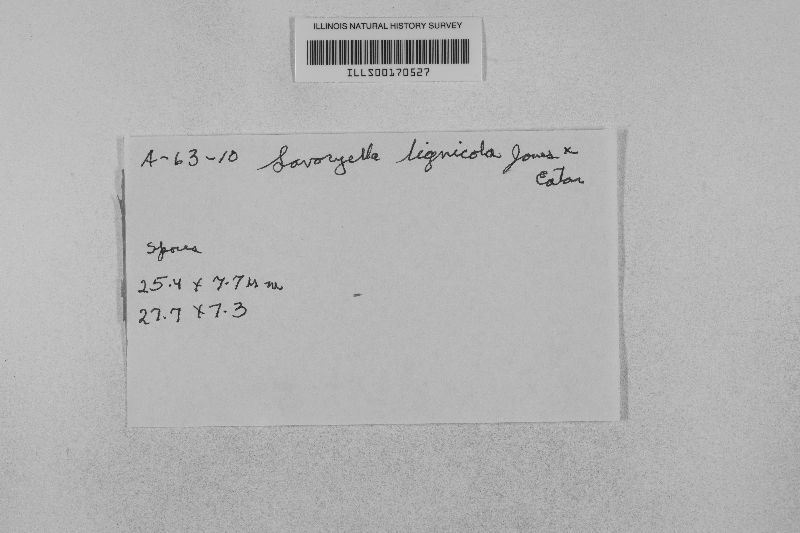 ILLINOIS NATURAL HISTORY SURVEY
ILLS00170527
A-63-10 Savoryella lignicola Jones &
Eaton
Spores
25.4 x 7.7 µm
27.7 x 7.3